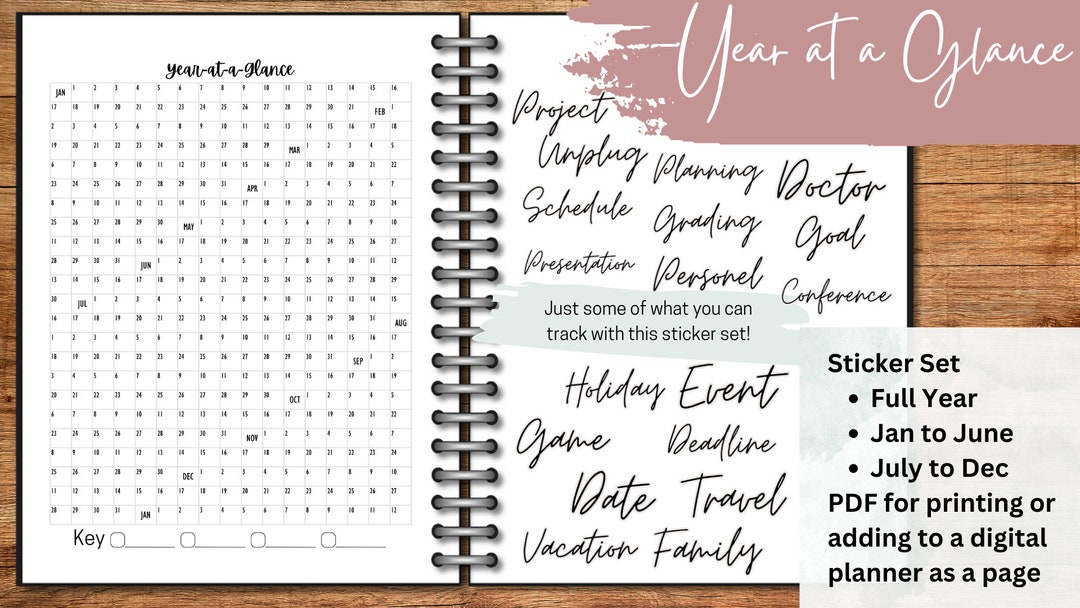 Year-at-a-Glance
JAN 1 2 3 4 5 6 7 8 9 10 11 12 13 14 15 16
17 18 19 20 21 22 23 24 25 26 27 28 29 30 21 FEB 1
2 3 4 5 6 7 8 9 10 11 12 13 14 15 16 17 18
19 20 21 22 23 24 25 26 27 28 29 MAR 1 2 3 4 5
6 7 8 9 10 11 12 13 14 15 16 17 18 19 20 21 22
23 24 25 26 27 28 29 30 31 APR 1 2 3 4 5 6 7
8 9 10 11 12 13 14 15 16 17 18 19 20 21 22 23 24
25 26 27 28 29 30 MAY 1 2 3 4 5 6 7 8 9 10
11 12 13 14 15 16 17 18 19 20 21 22 23 24 25 26 27
28 29 30 31 JUN 1 2 3 4 5 6 7 8 9 10 11 12
13 14 15 16 17 18 19 20 21 22 23 24 25 26 27 28 29
30 JUL 1 2 3 4 5 6 7 8 9 10 11 12 13 14 15
16 17 18 19 20 21 22 23 24 25 26 27 28 29 30 31 AUG
1 2 3 4 5 6 7 8 9 10 11 12 13 14 15 16 17
18 19 20 21 22 23 24 25 26 27 28 29 30 31 SEP 1 2
3 4 5 6 7 8 9 10 11 12 13 14 15 16 17 18 19
20 21 22 23 24 25 26 27 28 29 30 OCT 1 2 3 4 5
6 7 8 9 10 11 12 13 14 15 16 17 18 19 20 21 22
23 24 25 26 27 28 29 30 31 NOV 1 2 3 4 5 6 7
8 9 10 11 12 13 14 15 16 17 18 19 20 21 22 23 24
25 26 27 28 29 30 DEC 1 2 3 4 5 6 7 8 9 10
11 12 13 14 15 16 17 18 19 20 21 22 23 24 25 26 27
28 29 30 31 JAN 1 2 3 4 5 6 7 8 9 10 11 12
Key
Year at a Glance
Project
Unplug
Planning
Doctor
Schedule
Grading
Goal
Presentation
Personel
Conference
Just some of what you can
track with this sticker set!
Holiday
Event
Game
Deadline
Date
Travel
Vacation
Family
Sticker Set
• Full Year
• Jan to June
• July to Dec
PDF for printing or
adding to a digital
planner as a page